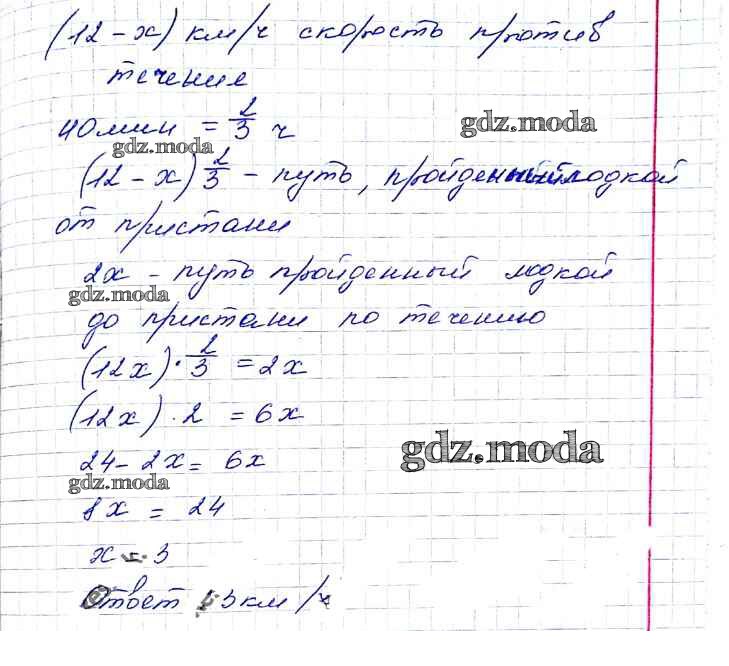 (12 - x) км/ч скорость против
течение
40мин = 2/3 ч
gdz.moda
gdz.moda
(12 - x) 2/3 - путь, пройденный лодкой
от пристани
2x - путь пройденный лодкой
gdz.moda
до пристани по течению
(12x) · 2/3 = 2x
(12x) · 2 = 6x
gdz.moda
24 - 2x = 6x
gdz.moda
8x = 24
x = 3
Ответ: 3км/ч